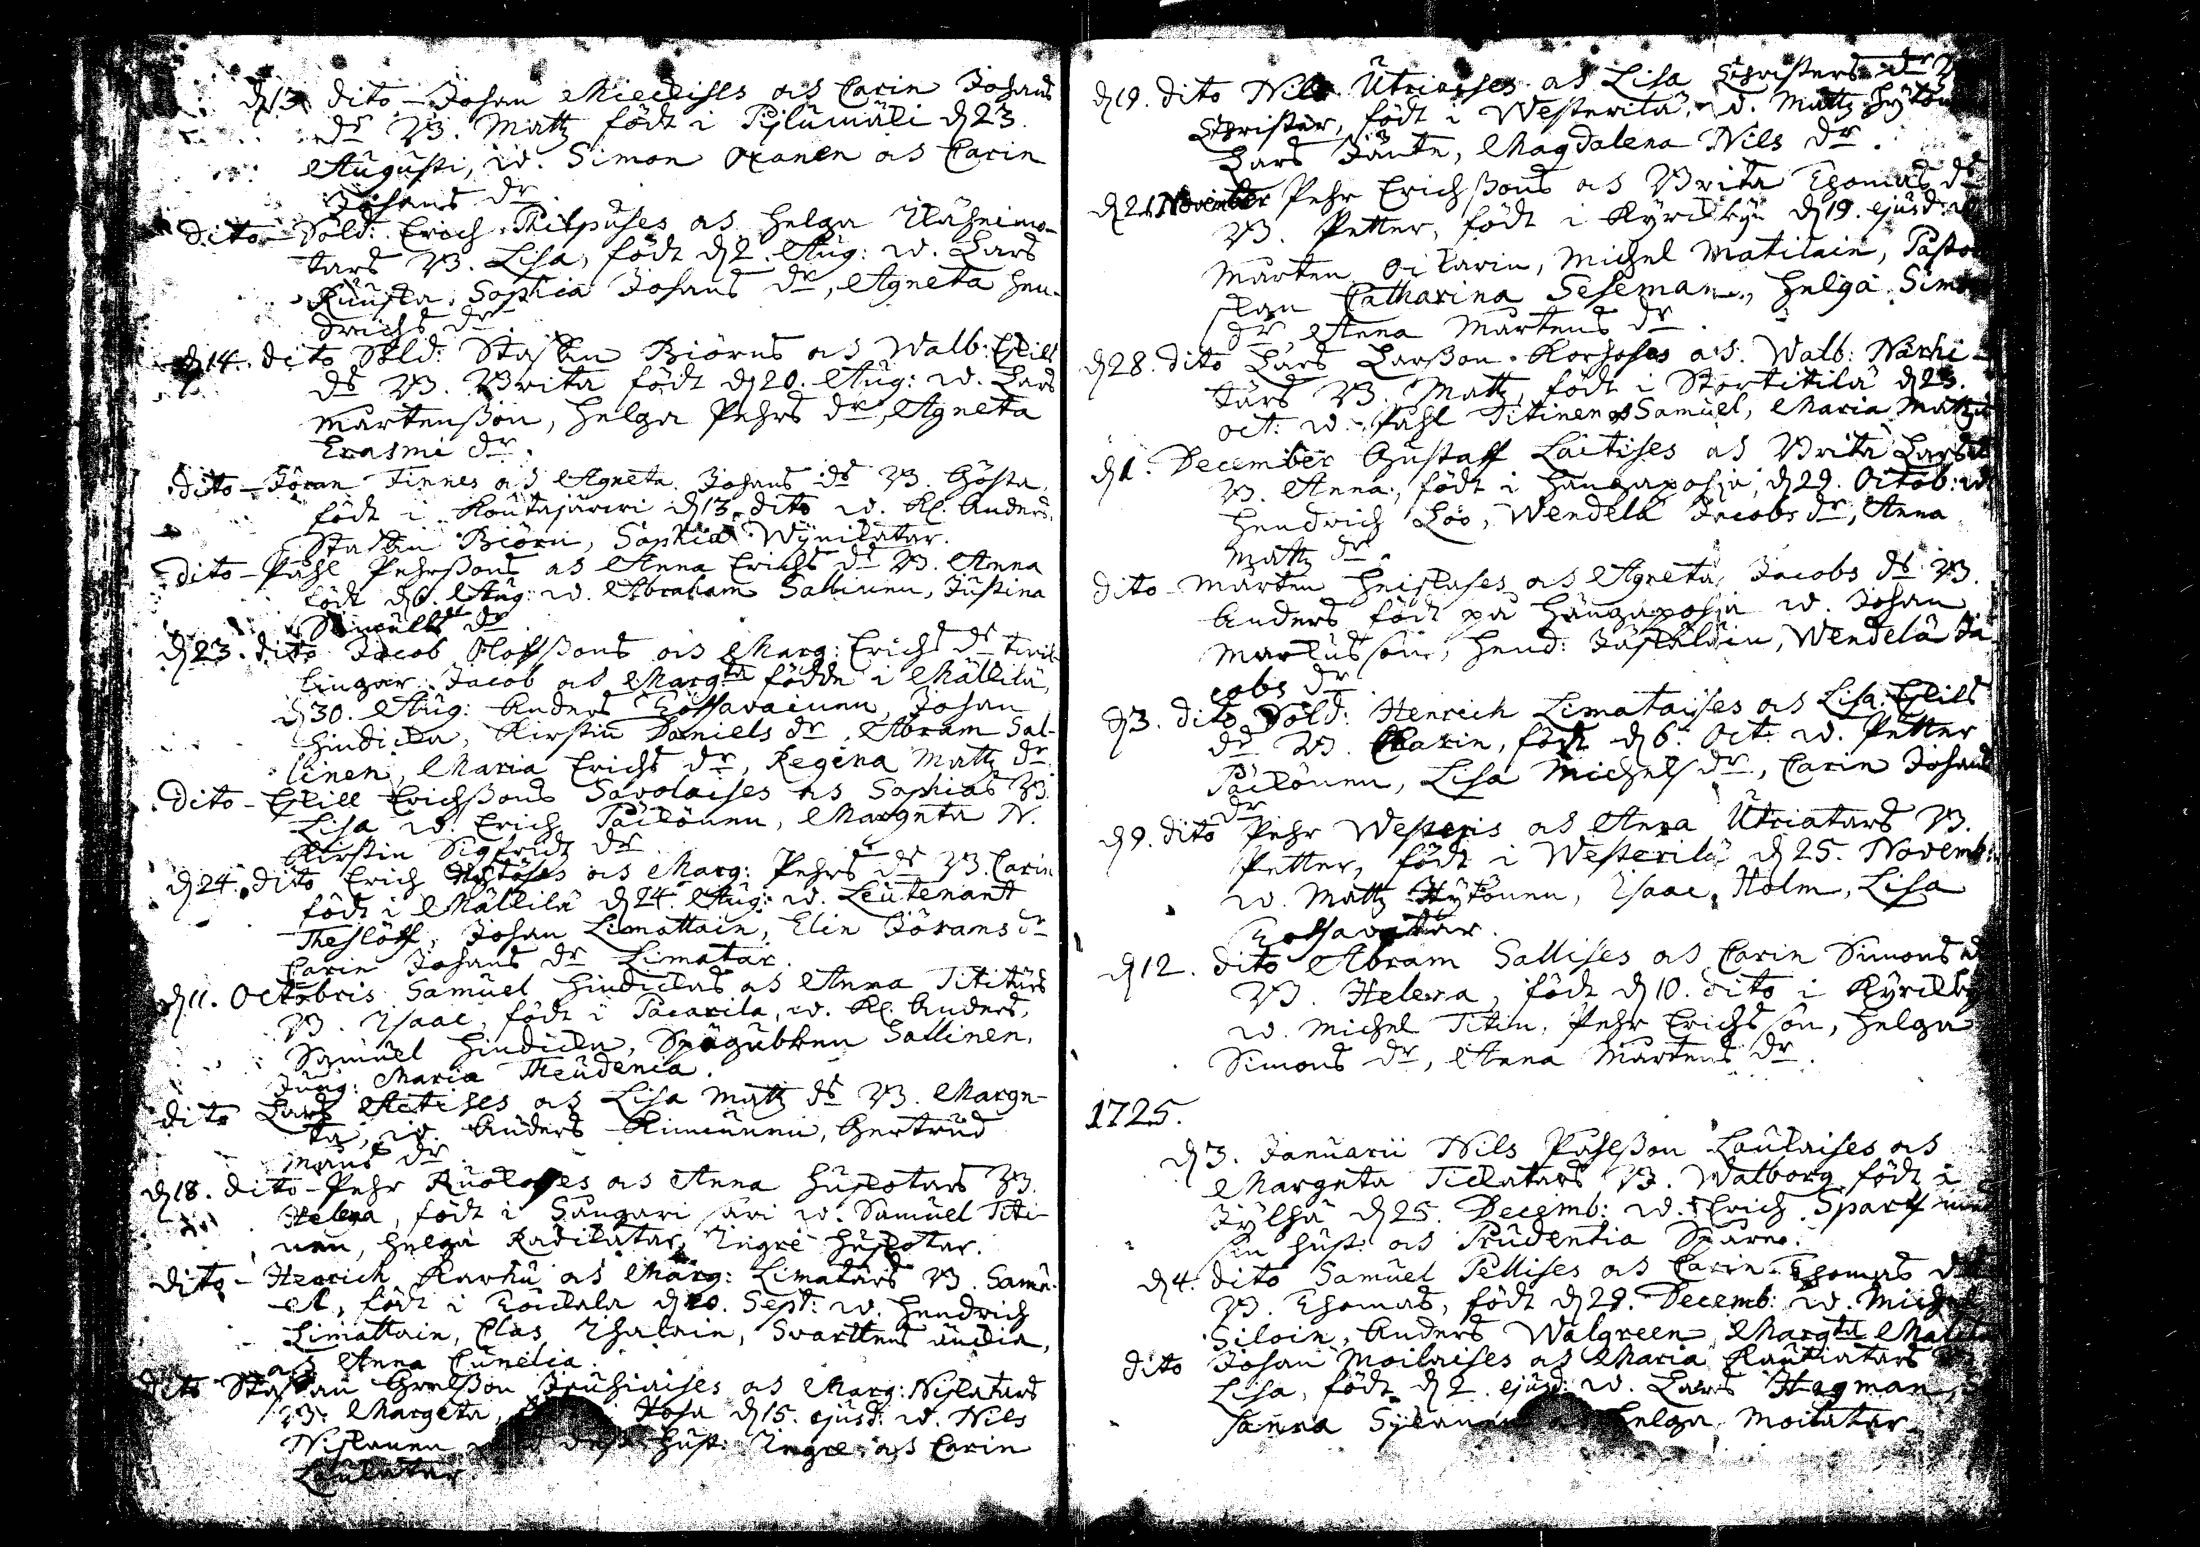 d 13 dito - Johan Mieckises och Carin Johans
dr B. Matz född i Pylumäki d 23.
Augusti, w. Simon Oranen och Carin
Johans dr
dito - Sold: Erich Philpuses och Helga
tars B. Lisa, född d 2. Aug: w. Lars
Ruuska, Sophia Johans dr, Agneta Hen-
drichs dr
d 14. dito Sold: Staffan Biörns och Walb: Eskils
dr B. Brita född d 20. Aug: w. Lars
Mårtensson, Helga Pehrs dr, Agneta
Erasmi dr.
dito - Jöran Finnes och Agneta Johans dr B. Gösta,
född i Koutajärwi d 13. dito w. Kl. Anders,
Staffan Biörn, Sophia Wynikatar.
dito - Påhl Pehrssons och Anna Erichs dr B. Anna
född d 6. Aug: w. Abraham Sallinen, Justina
Samuels dr
d 23. dito Jacob Olofssons och Marg: Erichs dr twil-
lingar Jacob och Margta födde i Mällilä,
d 30. Aug: Anders Johan
Hindicka, Kirstin Daniels dr, Abram Sal-
linen, Maria Erichs dr, Regina Matz dr.
dito - Eskill Erichssons Savolaises och Sophias B.
Lisa w. Erich Päckönen, Margeta N.
Kirstin Sigfridz dr
d 24. dito Erich Hytöses och Marg: Pehrs dr B. Carin
född i Mällilä d 24. Aug: w. Leutenant
Theslöff, Johan Limattain, Elin Jörans dr
Carin Johans dr Limatar.
d 11. Octobris Samuel Hindickas och Anna Tititars
B. Isaac, född i Pacarila, w. Kl. Anders,
Samuel Hindicka, Sallinen,
Jung: Maria Theudenia.
dito Lars Aetises och Lisa Matz dr B. Marge-
ta, w. Anders Kimunen, Gertrud
Måns dr.
d 18. dito - Pehr och Anna Huskotars B.
Helena, född i Sangari sari w. Samuel Titi-
nen, Helga Radikatar, Ingre Huskotar.
dito - Henrich Karhu och Marg: Limatars B. Samu-
el, född i d 20. Sept: w. Hendrich
Limattain, Clas Ihalain, Svartens
och Anna Cunelia.
dito Staffan och Marg: Niskatars
B. Margeta, d 15. ejusd: w. Nils
Niskanen hust: Ingre och Carin
Laukatar
d 19. dito Nils Utriaises och Lisa Christers dr B
Christer, född i Westerilä, w. Matz Hytön
Lars Jänte, Magdalena Nils dr.
d 21. November Pehr Erichssons och Brita Thomas dr
B. Petter, född i Kyrckbyn d 19. ejusd: w
Mårten Oikarin, Michel Matilain, Pasto
skan Catharina Seseman, Helga Simo
dr, Anna Mårtens dr.
d 28. dito Lars Larsson Korhoses och Walb: Närhi-
tars B. Matz född i Stortitilä d 23.
oct: w. Påhl Titinen och Samuel, Maria Matz
d 1. December Gustaff Laitises och Brita Lars dr
B. Anna, född i Hangapohja, d 29. Octob: w
Hendrich Löö, Wendela Jacobs dr, Anna
Matz dr.
dito - Mårten Heiskases och Agneta Jacobs dr B.
Anders född på Hångapohja w. Johan
Markusson, Hend: Jäskäläin, Wendela Ja-
cobs dr
d 3. dito Sold: Henrich Limataises och Lisa Eskils
dr B. Carin, född d 6. Oct: w. Petter
Päckönen, Lisa Michels dr, Carin Johans
dr
d 9. dito Pehr Westeris och Anna Utriatars B.
Petter, född i Westerilä d 25. Novemb:
w. Matz Hytönen, Isaac Holm, Lisa

d 12. dito Abram Sallises och Carin Simons dr
B. Helena, född d 10. dito i Kyrckby
w. Michel Titin, Pehr Erichsson, Helga
Simons dr, Anna Mårtens dr.
1725.
d 3. Januarii Nils Påhlsson Laukaises och
Margeta Ticlatars B. Walborg född i
Jylhä d 25. Decemb: w. Erich Sparf med
sin hust: och Prudentia Sparne.
d 4. dito Samuel Pellises och Carin Thomas dr
B. Thomas, född d 29. Decemb: w. Michel
Siloin, Anders Walgreen, Margta
dito Johan Moilaises och Maria Rautiatars
Lisa, född d 2. ejusd: w. Lars Hagman,
Sanna Helga Moilatar